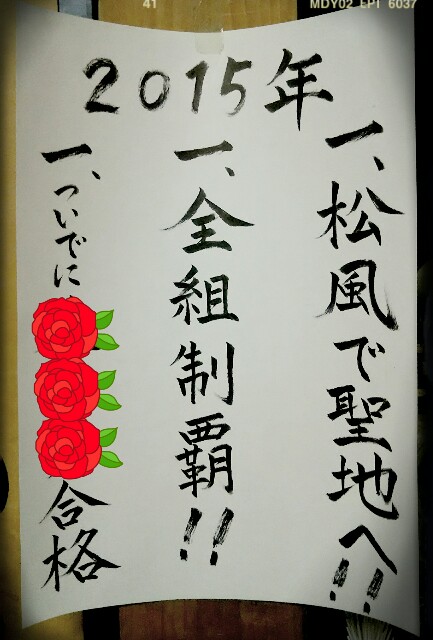 41
MDY02 EPI 6037
2015年
一、松風で聖地へ!!
一、全組制覇!!
一、ついでに
合格